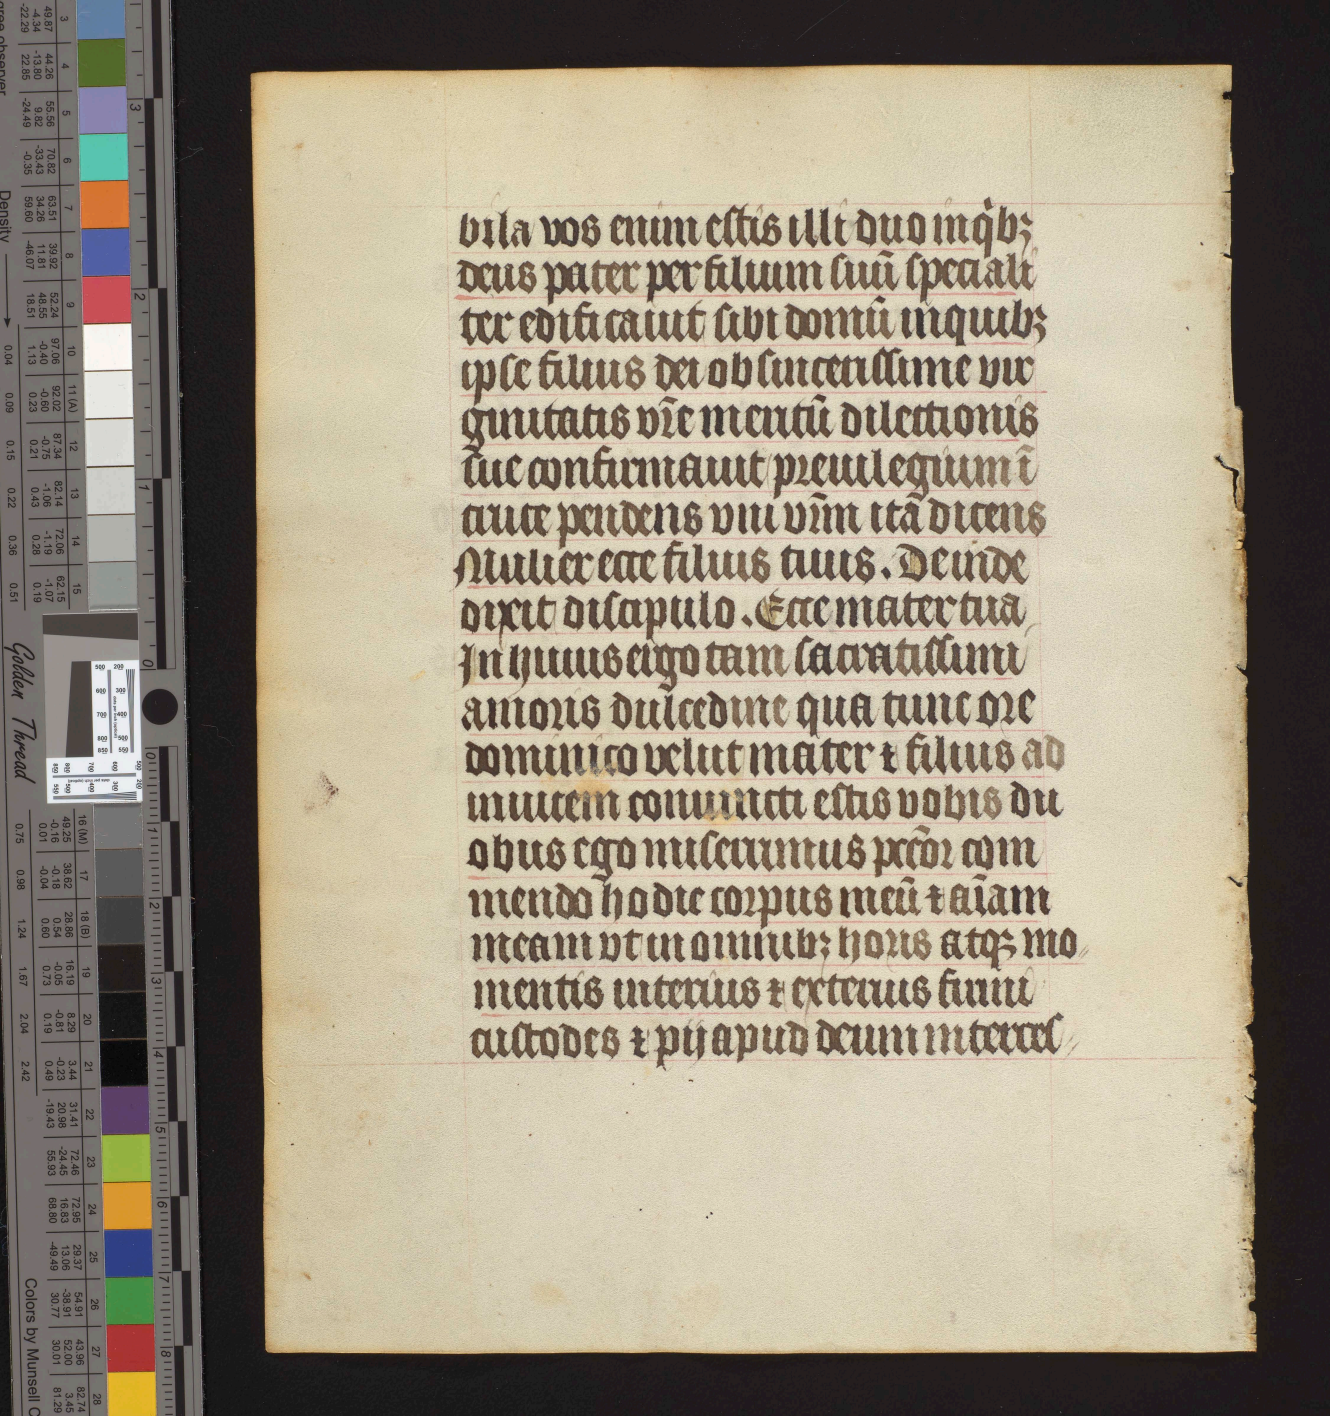 bila vos enim estis illi duo inq̇bꝫ
deus pater per filium suū speciali
ter edificauit sibi domū in quibꝫ
ipse filius dei ob sincerissime vir
ginitatis vr̄e meritū dilectionis
sue confirmauit preuilegium ī
cruce pendens vni vr̄m ita dicens
Mulier ecce filius tuus. Deinde
dixit discipulo. Ecce mater tua
In huius ergo tam sacratissimi
amoris dulcedine qua tunc ore
dominico velut mater ⁊ filius ad
inuicem coniuncti estis vobis du
obus ego miserrimus pcc̄or com
mendo hodie corpus meū ⁊ aīam
meam vt in omnibꝫ horis atqꝫ mo
mentis interius ⁊ exterius firmi
custodes ⁊ pij apud deum interces
3
4
5
6
7
8
9
10
11 (A)
12
13
14
15
16 (M)
17
18 (B)
19
20
21
22
23
24
25
26
27
28
Density
0.04
0.09
0.15
0.22
0.36
0.51
0.75
0.98
1.24
1.67
2.04
2.42
Golden Thread
Colors by Munsell C